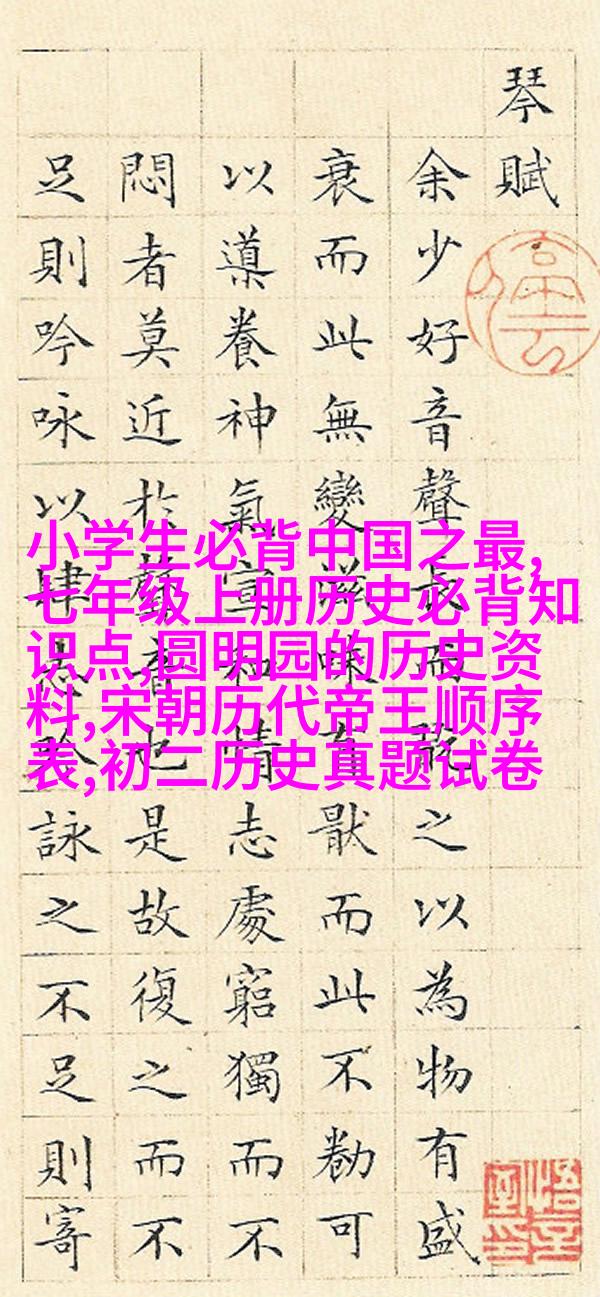 琴賦
余少好音聲長而翫之以為物有盛
衰而此無變滋味有猒而此不勌可
以導養神氣宣和情志處窮獨而不
悶者莫近於聲音也是故復之而不
足則吟咏以肆志吟詠之不足則寄
小学生必背中国之最,
七年级上册历史必背知
识点,圆明园的历史资
料,宋朝历代帝王顺序
表,初二历史真题试卷